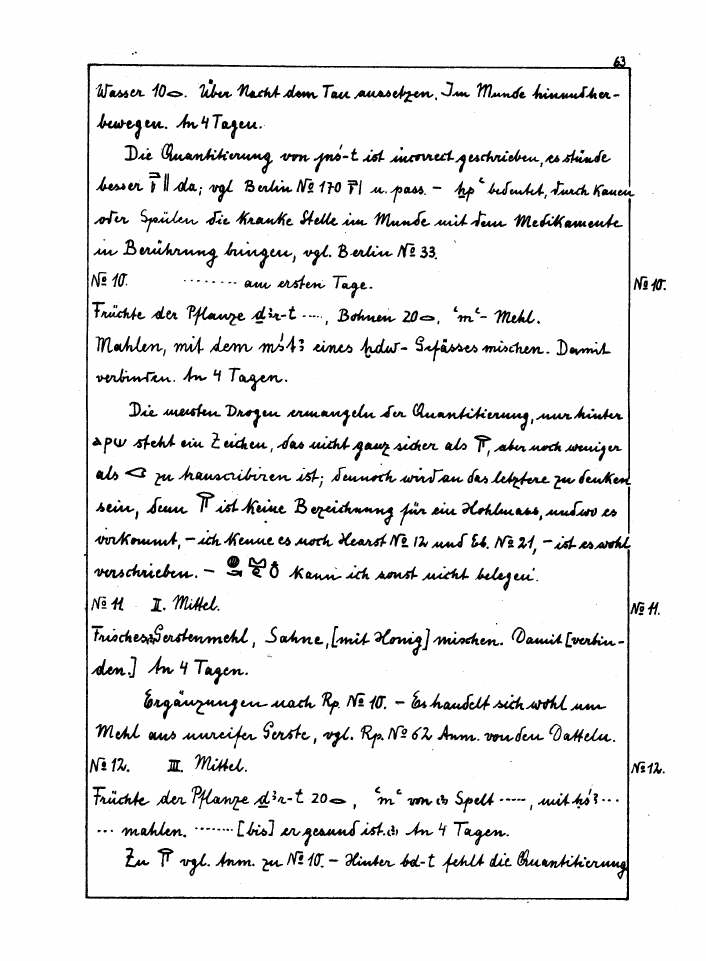 63
Wasser 10. Über Nacht dem Tau aussetzen. Im Munde hinundher-
bewegen. An 4 Tagen.
Die Quantitierung von jnś-t ist incorrect geschrieben, es stünde
besser da; vgl Berlin № 170 u. pass. – bedeutet, durch Kauen
oder Spülen die kranke Stelle im Munde mit dem Medikamente
in Berührung bringen, vgl. Berlin № 33.
№ 10. ········ am ersten Tage. № 10.
Früchte der Pflanze ḏꜣr-t ·····, Bohnen 20, ꜥmꜥ- Mehl.
Mahlen, mit dem mśtꜣ eines ḥdw- Gefässes mischen. Damit
verbinden. An 4 Tagen.
Die meisten Drogen ermangeln der Quantitierung, nur hinter
steht ein Zeichen, das nicht ganz sicher als, aber noch weniger
als zu transcribiren ist; dennoch wird an das letztere zu denken
sein, denn ist keine Bezeichnung für ein Hohlmass, und wo es
vorkommt, – ich kenne es noch Hearst № 12 und Eb. № 21, – ist es wohl
verschrieben. – kann ich sonst nicht belegen.
№ 11 II. Mittel. № 11.
Frisches Gerstenmehl, Sahne, [mit Honig] mischen. Damit [verbin-
den.] An 4 Tagen.
Ergänzungen nach Rp. № 10. – Es handelt sich wohl um
Mehl aus unreifer Gerste, vgl. Rp. № 62 Anm. von den Datteln.
№ 12. III. Mittel. № 12.
Früchte der Pflanze ḏꜣr-t 20, ꜥmꜥ von Spelt ·····, mit ···
··· mahlen. ········ [bis] er gesund ist. An 4 Tagen.
Zu vgl. Anm. zu № 10. – Hinter bd-t fehlt die Quantitierung